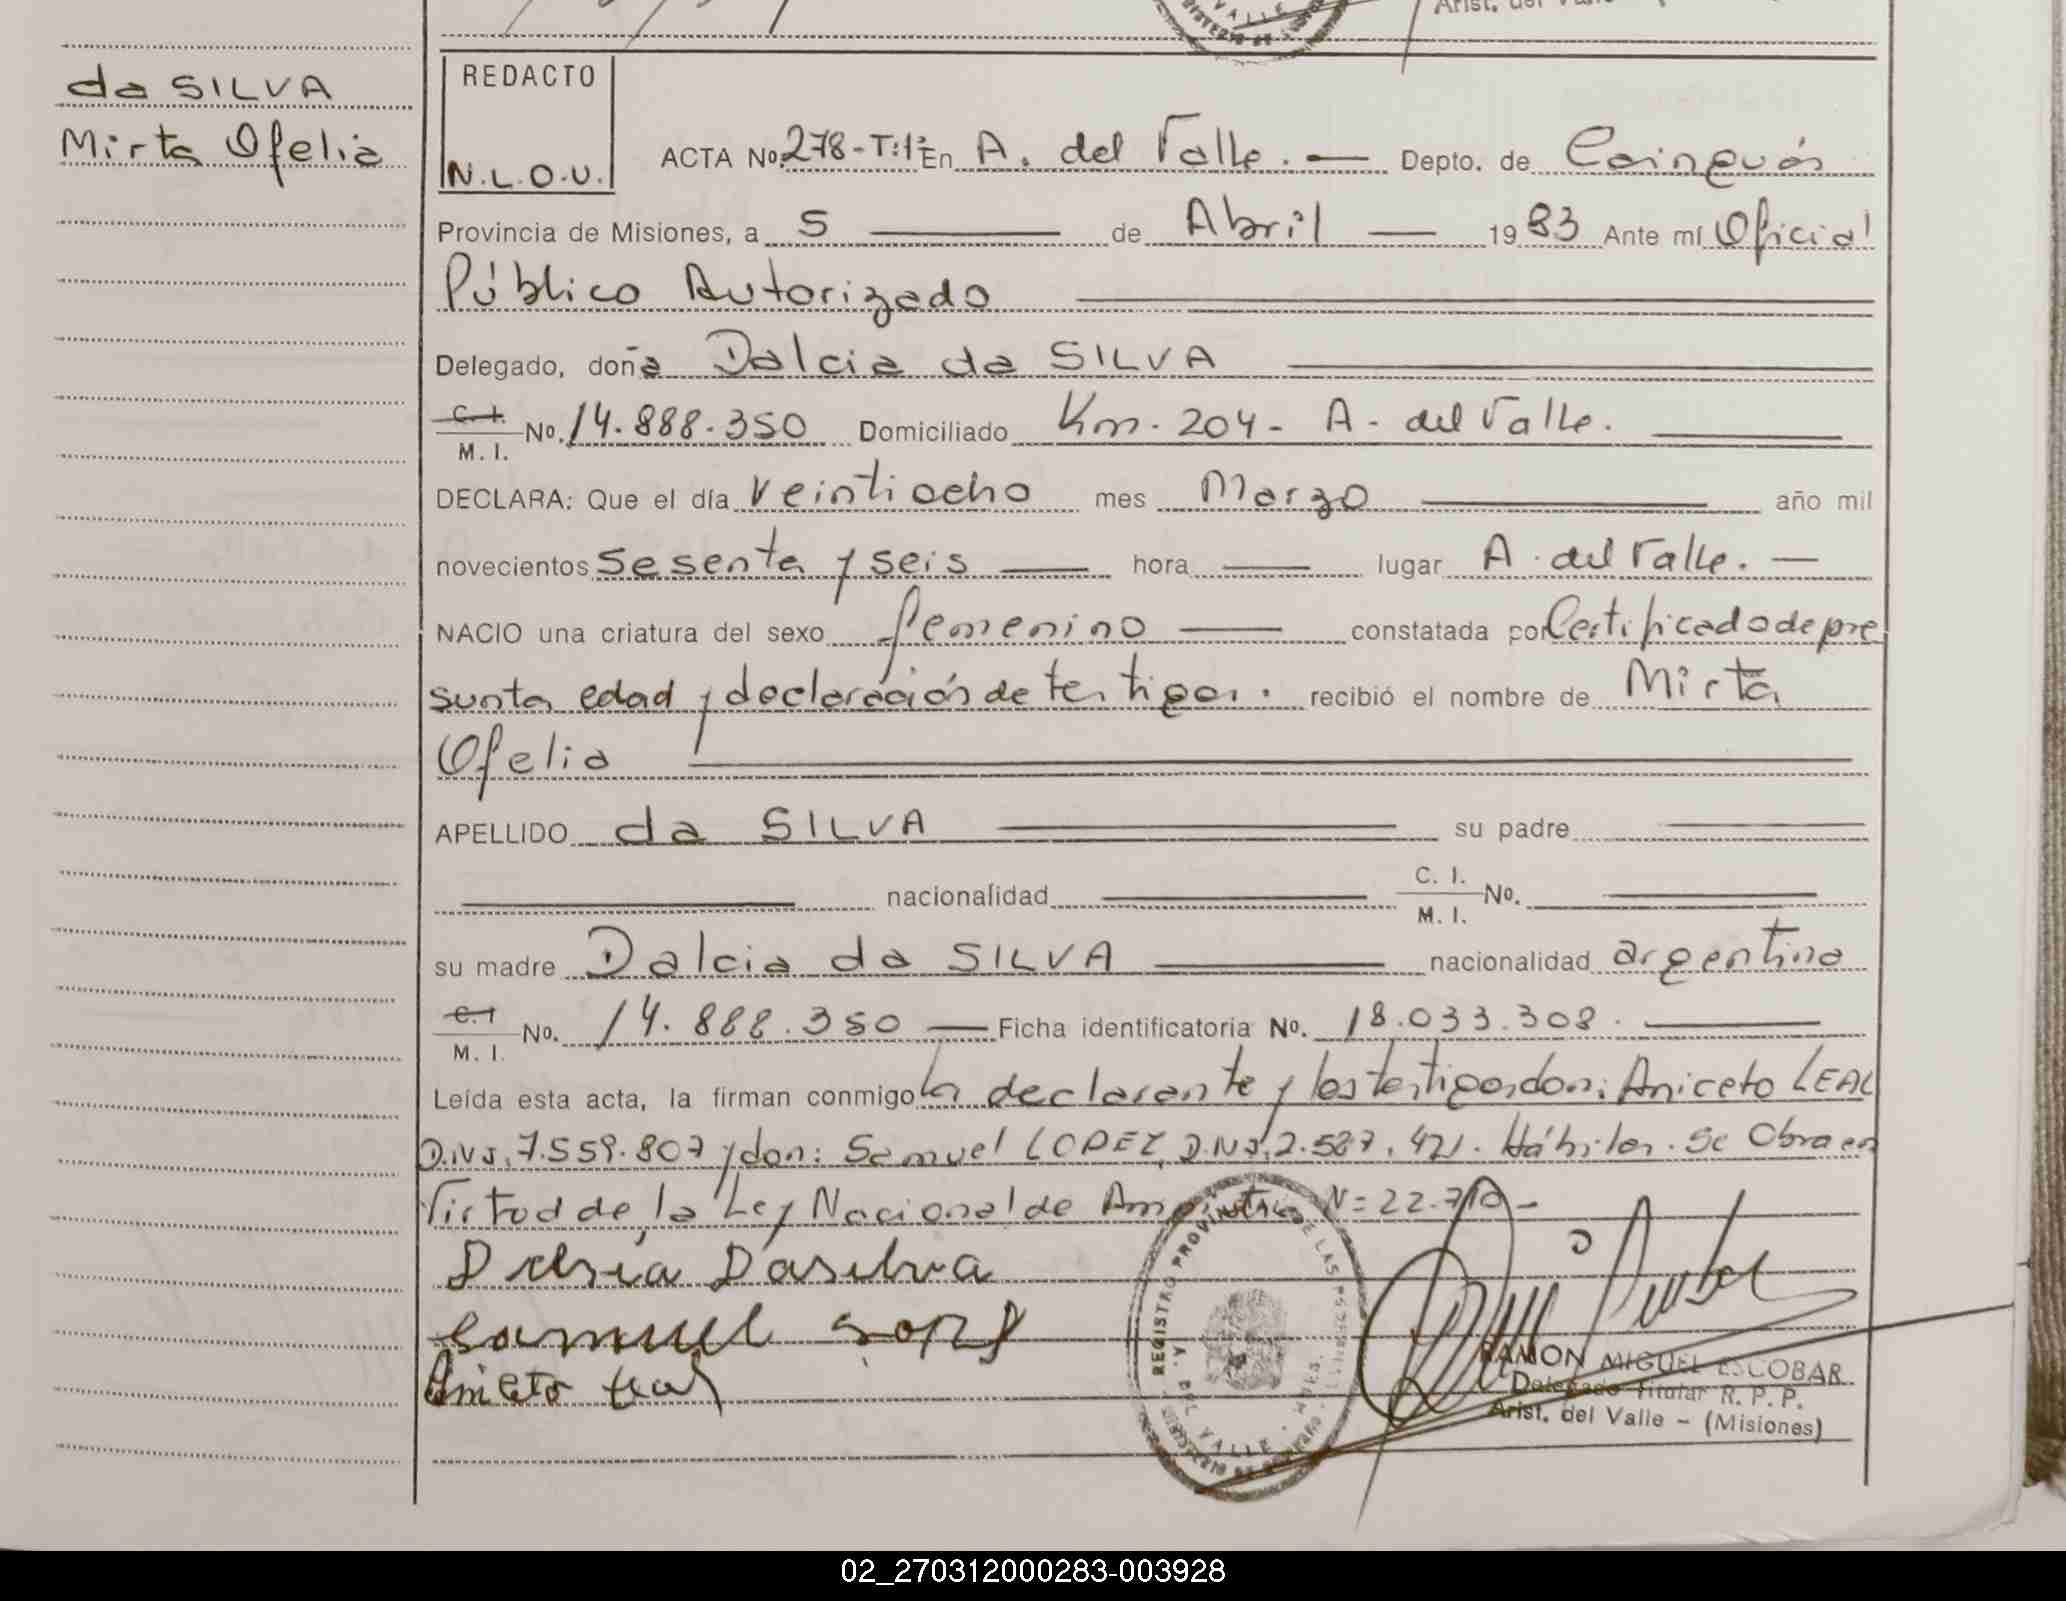 Arist. del Valle
VALLE
da SILVA
Mirta Ofelia
REDACTO
N.L.O.U.
ACTA No. 278-T:1º En A. del Valle. — Depto. de Cainguás
Provincia de Misiones, a 5 — de Abril — 1983 Ante mí Oficial
Público Autorizado
Delegado, doña Dalcia da SILVA
C. I. M. I. No. 14.888.350 Domiciliado Km. 204 - A. del Valle.
DECLARA: Que el día veintiocho mes Marzo año mil
novecientos sesenta y seis — hora — lugar A. del Valle. —
NACIO una criatura del sexo femenino — constatada por Certificado de pre
sunta edad y declaración de testigos. recibió el nombre de Mirta
Ofelia
APELLIDO da SILVA — su padre —
— nacionalidad — C. I. M. I. No. —
su madre Dalcia da SILVA — nacionalidad argentina
C. I M. I. No. 14.888.350 — Ficha identificatoria No. 18.033.308. —
Leída esta acta, la firman conmigo la declarante y los testigos don: Aniceto LEAL
D.N.I. 7.559.807 y don: Samuel LOPEZ, D.N.I. 2.587.421. Hábiles. Se Obra en
Virtud de la Ley Nacional de Amnistía N= 22.710 -
Delsia Dasilva
Samuel Lopes
Aniceto Leal
REGISTRO PROVINCIAL DE LAS PERSONAS
A. DEL VALLE - MNES.
RAMON MIGUEL ESCOBAR
Delegado Titular R. P. P.
Arist. del Valle - (Misiones)
02_270312000283-003928